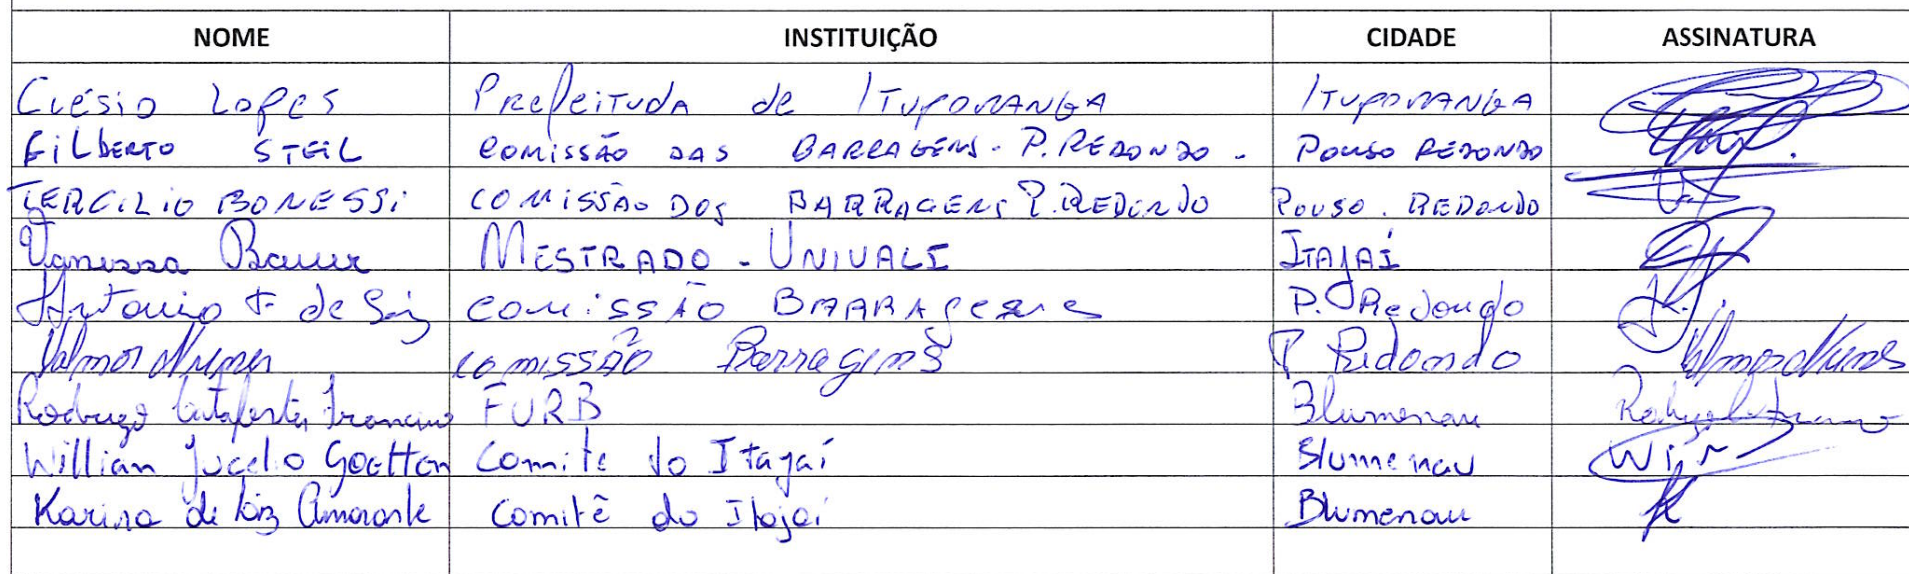 NOME INSTITUIÇÃO CIDADE ASSINATURA
Clésio Lopes Prefeituda de ITUPORANGA ITUPORANGA
GILBERTO STEIL COMISSÃO DAS BARRAGENS - P. REDONDO - POUSO REDONDO
TERCILIO BONESSI COMISSÃO DOS BARRAGENS P. REDONDO POUSO. REDONDO
Vanessa Bauer MESTRADO - UNIVALI ITAJAÍ
Antonio F de comissão P. Redondo
Valmor Nunes comissão Barragens P Redondo Valmor Nunes
Rodrigo FURB Blumenau
Willian Jucelio Goetten Comite do Itajaí Blumenau
Karina de Amarante Comitê do Itajaí Blumenau